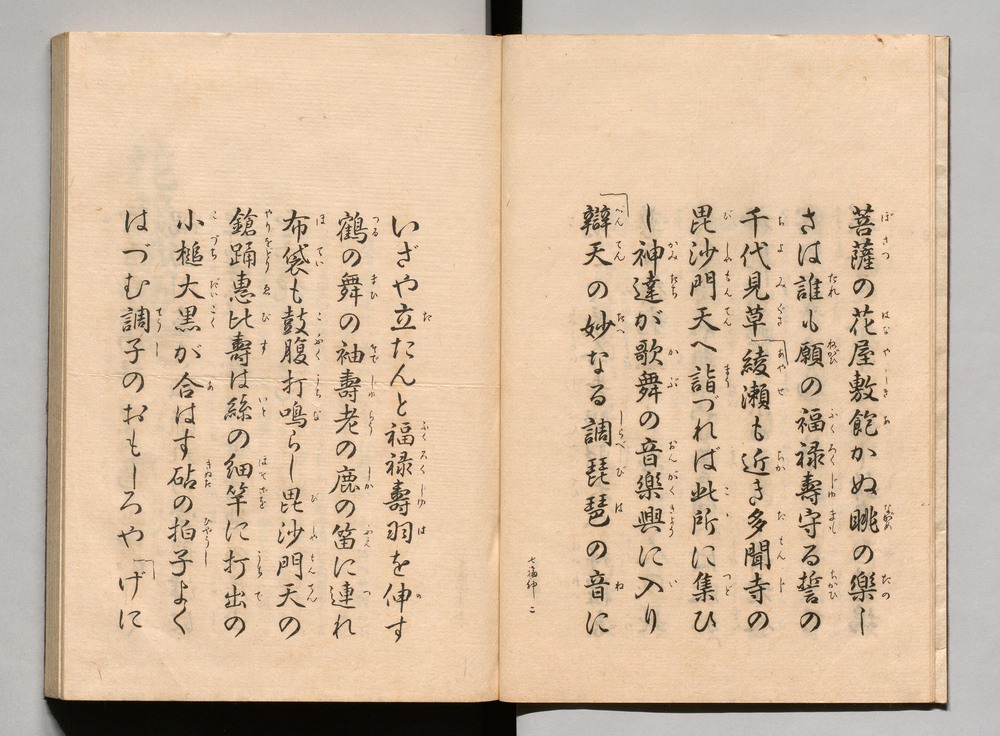 菩薩の花屋敷飽かぬ眺の樂し
さは誰も願の福禄壽守る誓の
千代見草綾瀬も近き多聞寺の
毘沙門天へ詣づれば此所に集ひ
し神達が歌舞の音樂興に入り
辯天の妙なる調琵琶の音に
七福神 二
いざや立たんと福禄壽羽を伸す
鶴の舞の袖壽老の鹿の笛に連れ
布袋も鼓腹打鳴らし毘沙門天の
鎗踊惠比壽は絲の細竿に打出の
小槌大黒が合はす砧の拍子よく
はづむ調子のおもしろや げに